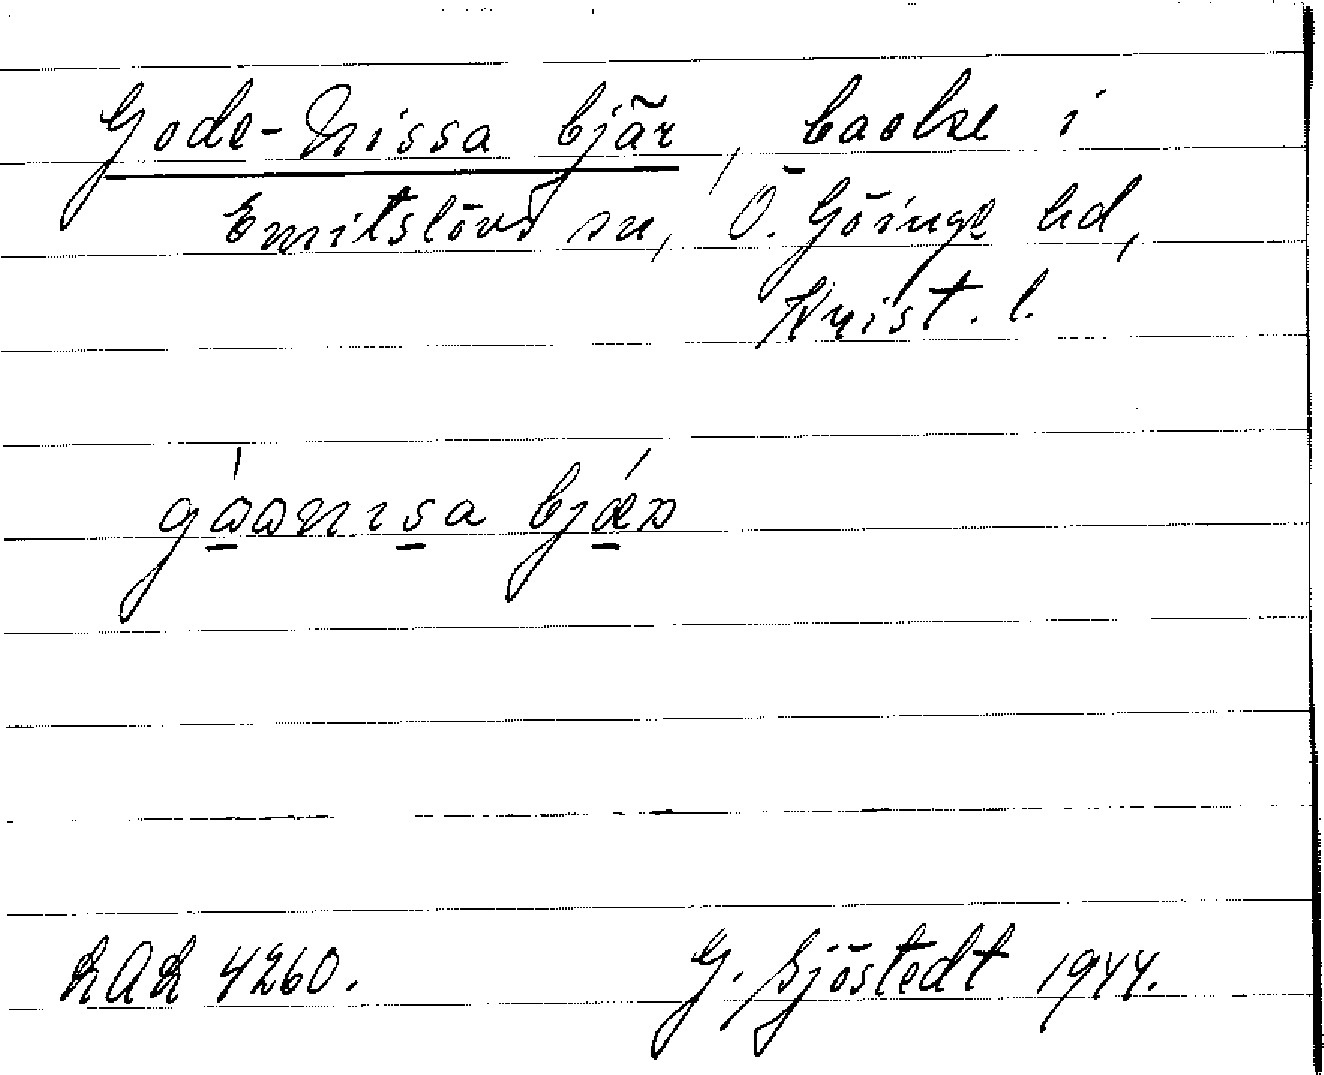 Gode-Nissa bjär, backe i
Emitslövs sn, Ö. Göinge hd,
Krist. l.
bjär
LAL 4260. G. Sjöstedt 1944.